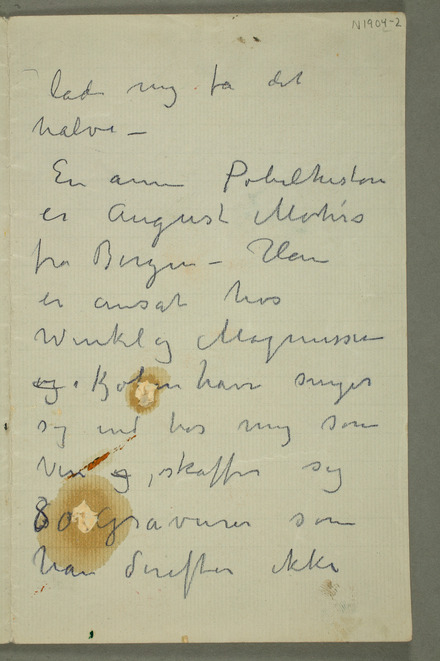 N1904-2
lad mig få det
halve –
En anden Pøbelhistorie
er August Mohrs
fra Bergen – Han
er ansat hos
Winkel og Magnussen
og i Kjøbenhavn sniger
sig ind hos mig som
Ven og, skaffer sig
80 Gravurer som
han derefter ikke